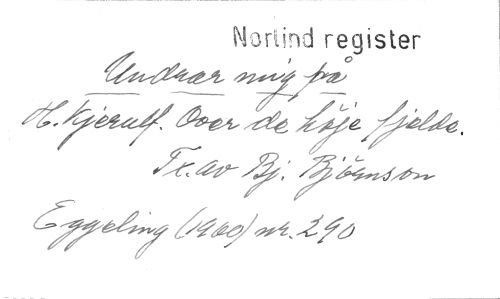 Norlind register
Undrar mig på
H. Kjerulf. Över de höje fjelde.
Tx. av Bj. Björnson
Eggeling (1900) nr. 290